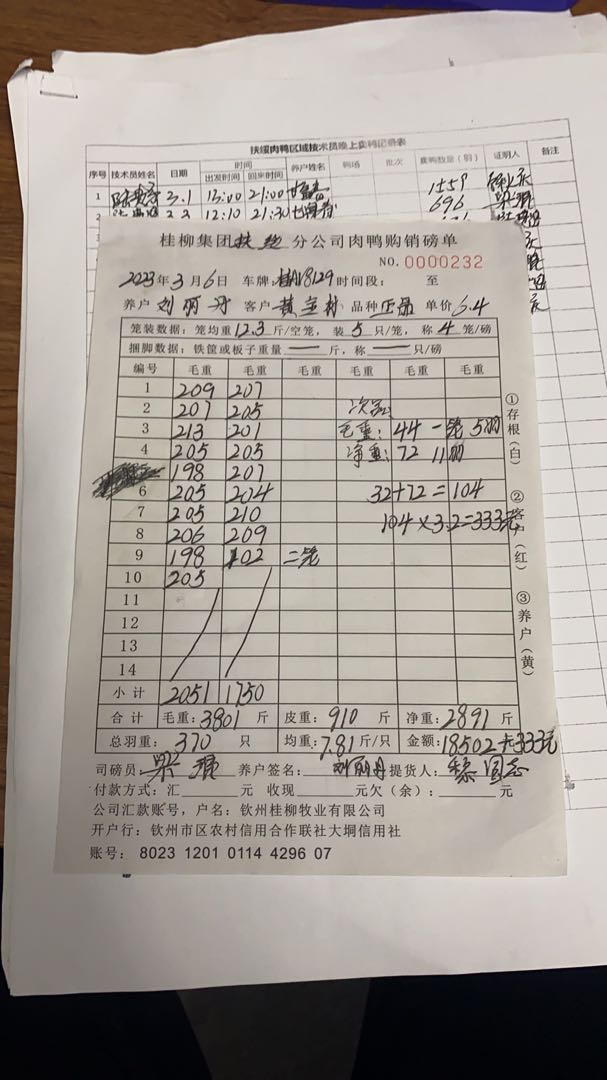 扶绥肉鸭区域技术员晚上卖鸭记录表
序号 技术员姓名 日期 时间 养户姓名 鸭场 批次 卖鸭数量(羽) 证明人 备注
出发时间 回来时间
1 3.1 13:00 21:00 1559
2 12:10 21:30 696
桂柳集团扶绥分公司肉鸭购销磅单
NO.0000232
2023年3月6日 车牌: 时间段: 至
养户 刘丽丹 客户 黄宝村 品种 正品 单价 6.4
笼装数据: 笼均重12.3斤/空笼, 装5只/笼, 称4笼/磅
捆脚数据: 铁筐或板子重量 — 斤, 称 — 只/磅
编号 毛重 毛重 毛重 毛重 毛重 毛重
1 209 207
2 207 205 次品:
3 213 201 毛重: 44 一笼 5羽
4 205 205 净重: 72 11羽
198 207
6 205 204 32+72=104
7 205 210 104×3.2=333元
8 206 209
9 198 102 二笼
10 205
11
12
13
14
小计 2051 1750
合计 毛重: 3801 斤 皮重: 910 斤 净重: 2891 斤
总羽重: 370 只 均重: 7.81 斤/只 金额: 18502元 333元
司磅员: 梁 养户签名: 刘丽丹 提货人: 黎国志
付款方式: 汇 元 收现 元欠(余): 元
公司汇款账号, 户名: 钦州桂柳牧业有限公司
开户行: 钦州市区农村信用合作联社大垌信用社
账号: 8023 1201 0114 4296 07
①存根(白) ②客户(红) ③养户(黄)